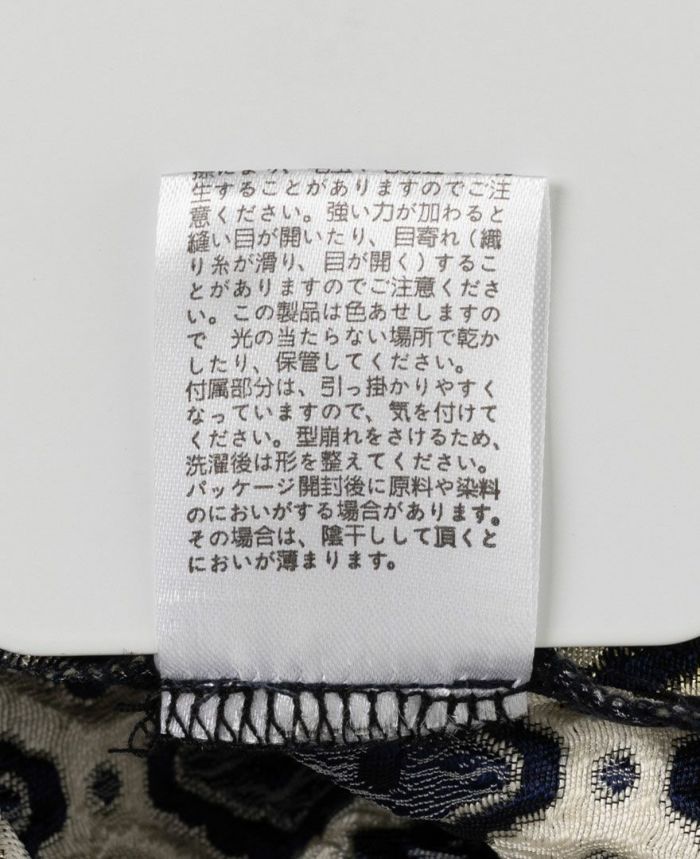 生することがありますのでご注
意ください。強い力が加わると
縫い目が開いたり、目寄れ（織
り糸が滑り、目が開く）するこ
とがありますのでご注意くださ
い。この製品は色あせしますの
で　光の当たらない場所で乾か
したり、保管してください。
付属部分は、引っ掛かりやすく
なっていますので、気を付けて
ください。型崩れをさけるため、
洗濯後は形を整えてください。
パッケージ開封後に原料や染料
のにおいがする場合があります。
その場合は、陰干しして頂くと
においが薄まります。